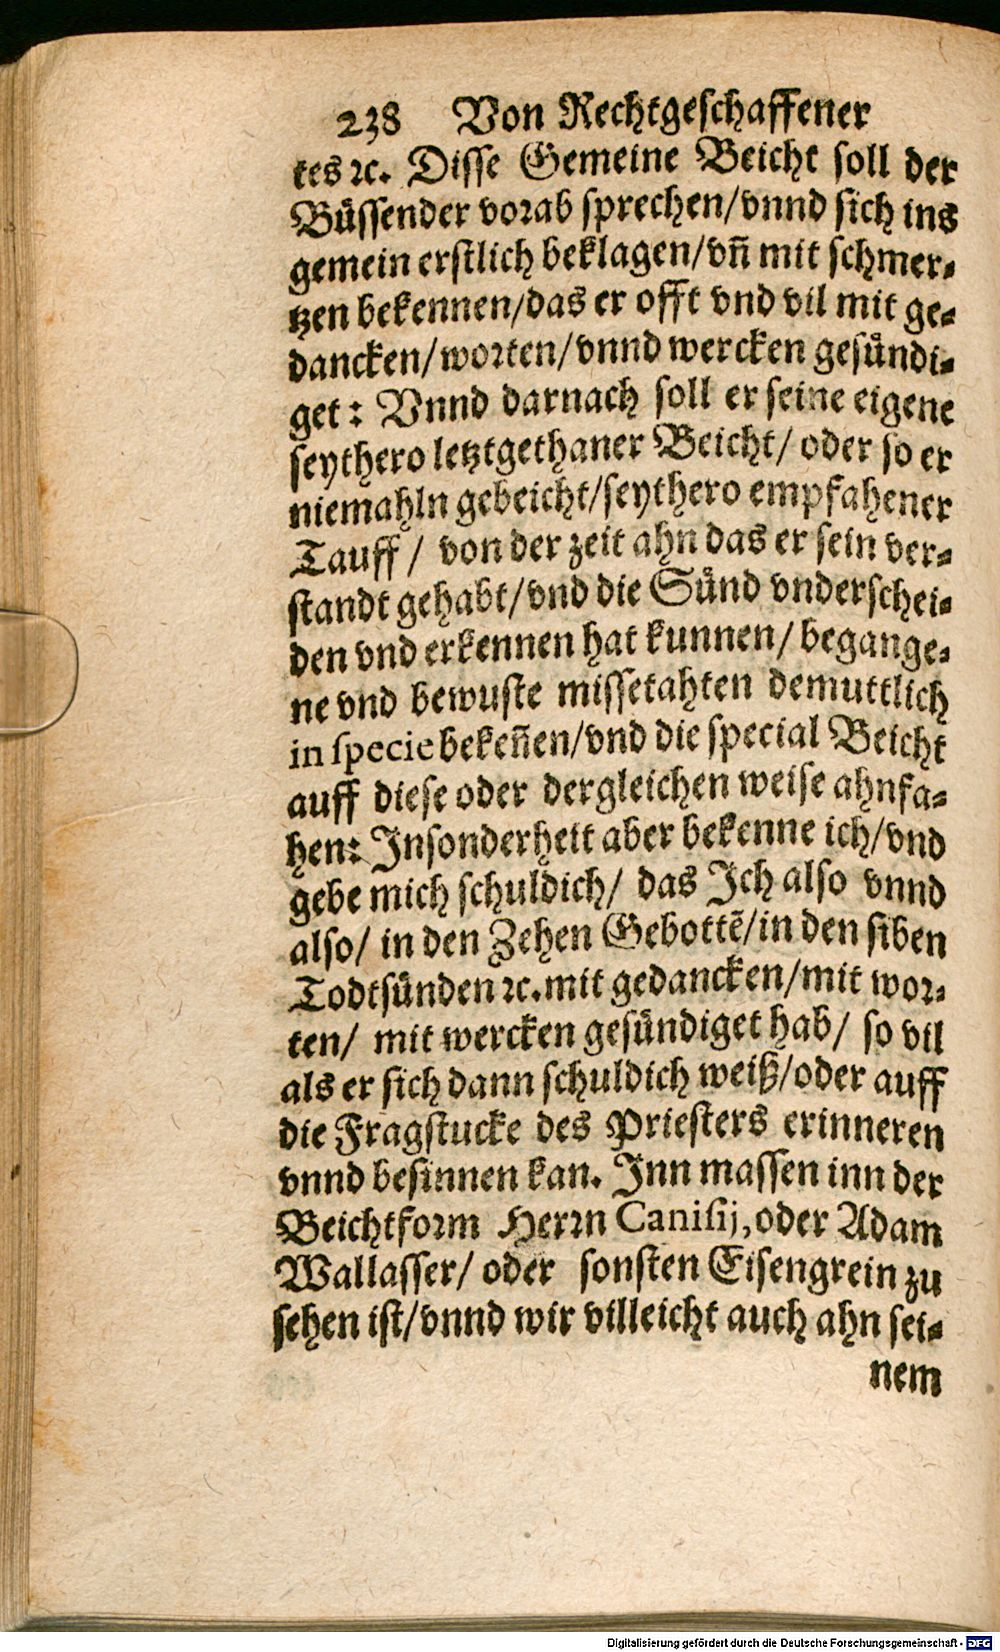 238 Von Rechtgeschaffener
tes ꝛc. Disse Gemeine Beicht soll der
Büssender vorab sprechen/vnnd sich ins
gemein erstlich beklagen/vñ mit schmer-
tzen bekennen/das er offt vnd vil mit ge-
dancken/worten/vnnd wercken gesündi-
get: Vnnd darnach soll er seine eigene
seythero letztgethaner Beicht/ oder so er
niemahln gebeicht/seythero empfahener
Tauff/ von der zeit ahn das er sein ver-
standt gehabt/vnd die Sünd vnderschei-
den vnd erkennen hat kunnen/ begange-
ne vnd bewuste missetahten demuttlich
in specie bekeñen/vnd die special Beicht
auff diese oder dergleichen weise ahnfa-
hen: Insonderheit aber bekenne ich/vnd
gebe mich schuldich/ das Ich also vnnd
also/ in den Zehen Gebottẽ/in den siben
Todtsünden ꝛc. mit gedancken/mit wor-
ten/ mit wercken gesündiget hab/ so vil
als er sich dann schuldich weiß/oder auff
die Fragstucke des Priesters erinneren
vnnd besinnen kan. Inn massen inn der
Beichtform Herrn Canisij, oder Adam
Wallasser/ oder sonsten Eisengrein zu
sehen ist/vnnd wir villeicht auch ahn sei-
nem
Digitalisierung gefördert durch die Deutsche Forschungsgemeinschaft - DFG